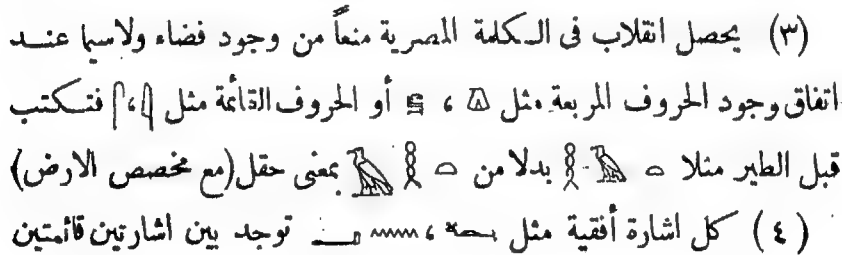 (٣) يحصل انقلاب فى الكلمة المصرية منعاً من وجود فضاء ولاسيما عند
اتفاق وجود الحروف المربعة مثل 𓎼 ، أو الحروف القائمة مثل 𓇋، 𓋴 فتكتب
قبل الطير مثلا 𓏏 𓄿 𓎛 بدلا من 𓏏 𓎛 𓄿 بمعنى حقل(مع مخصص الارض)
(٤) كل اشارة أفقية مثل 𓆑 ، 𓈖 𓂝 توجد بين اشارتين قائمتين